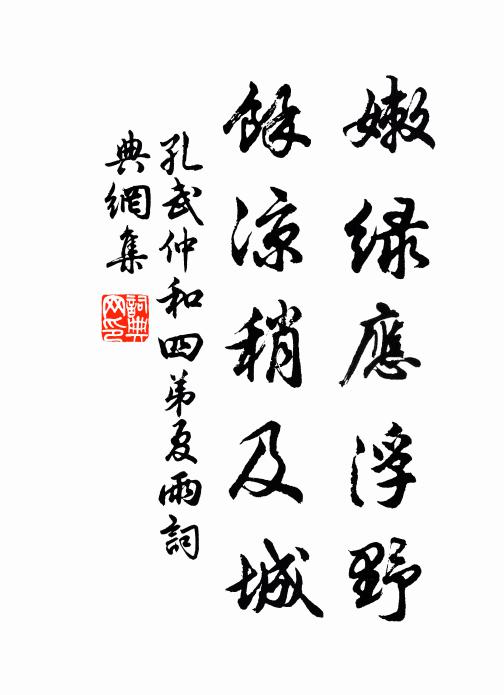 嫩绿應浮野
餘凉稍及城
孔武仲和四弟夏雨詞
典網集
詞典网印